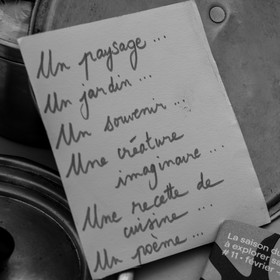 Un paysage ...
Un jardin ...
Un souvenir ...
Une créature
imaginaire ....
Une recette de
cuisine ...
Un poème ...
La saison du
à explorer s
#11 • févrie